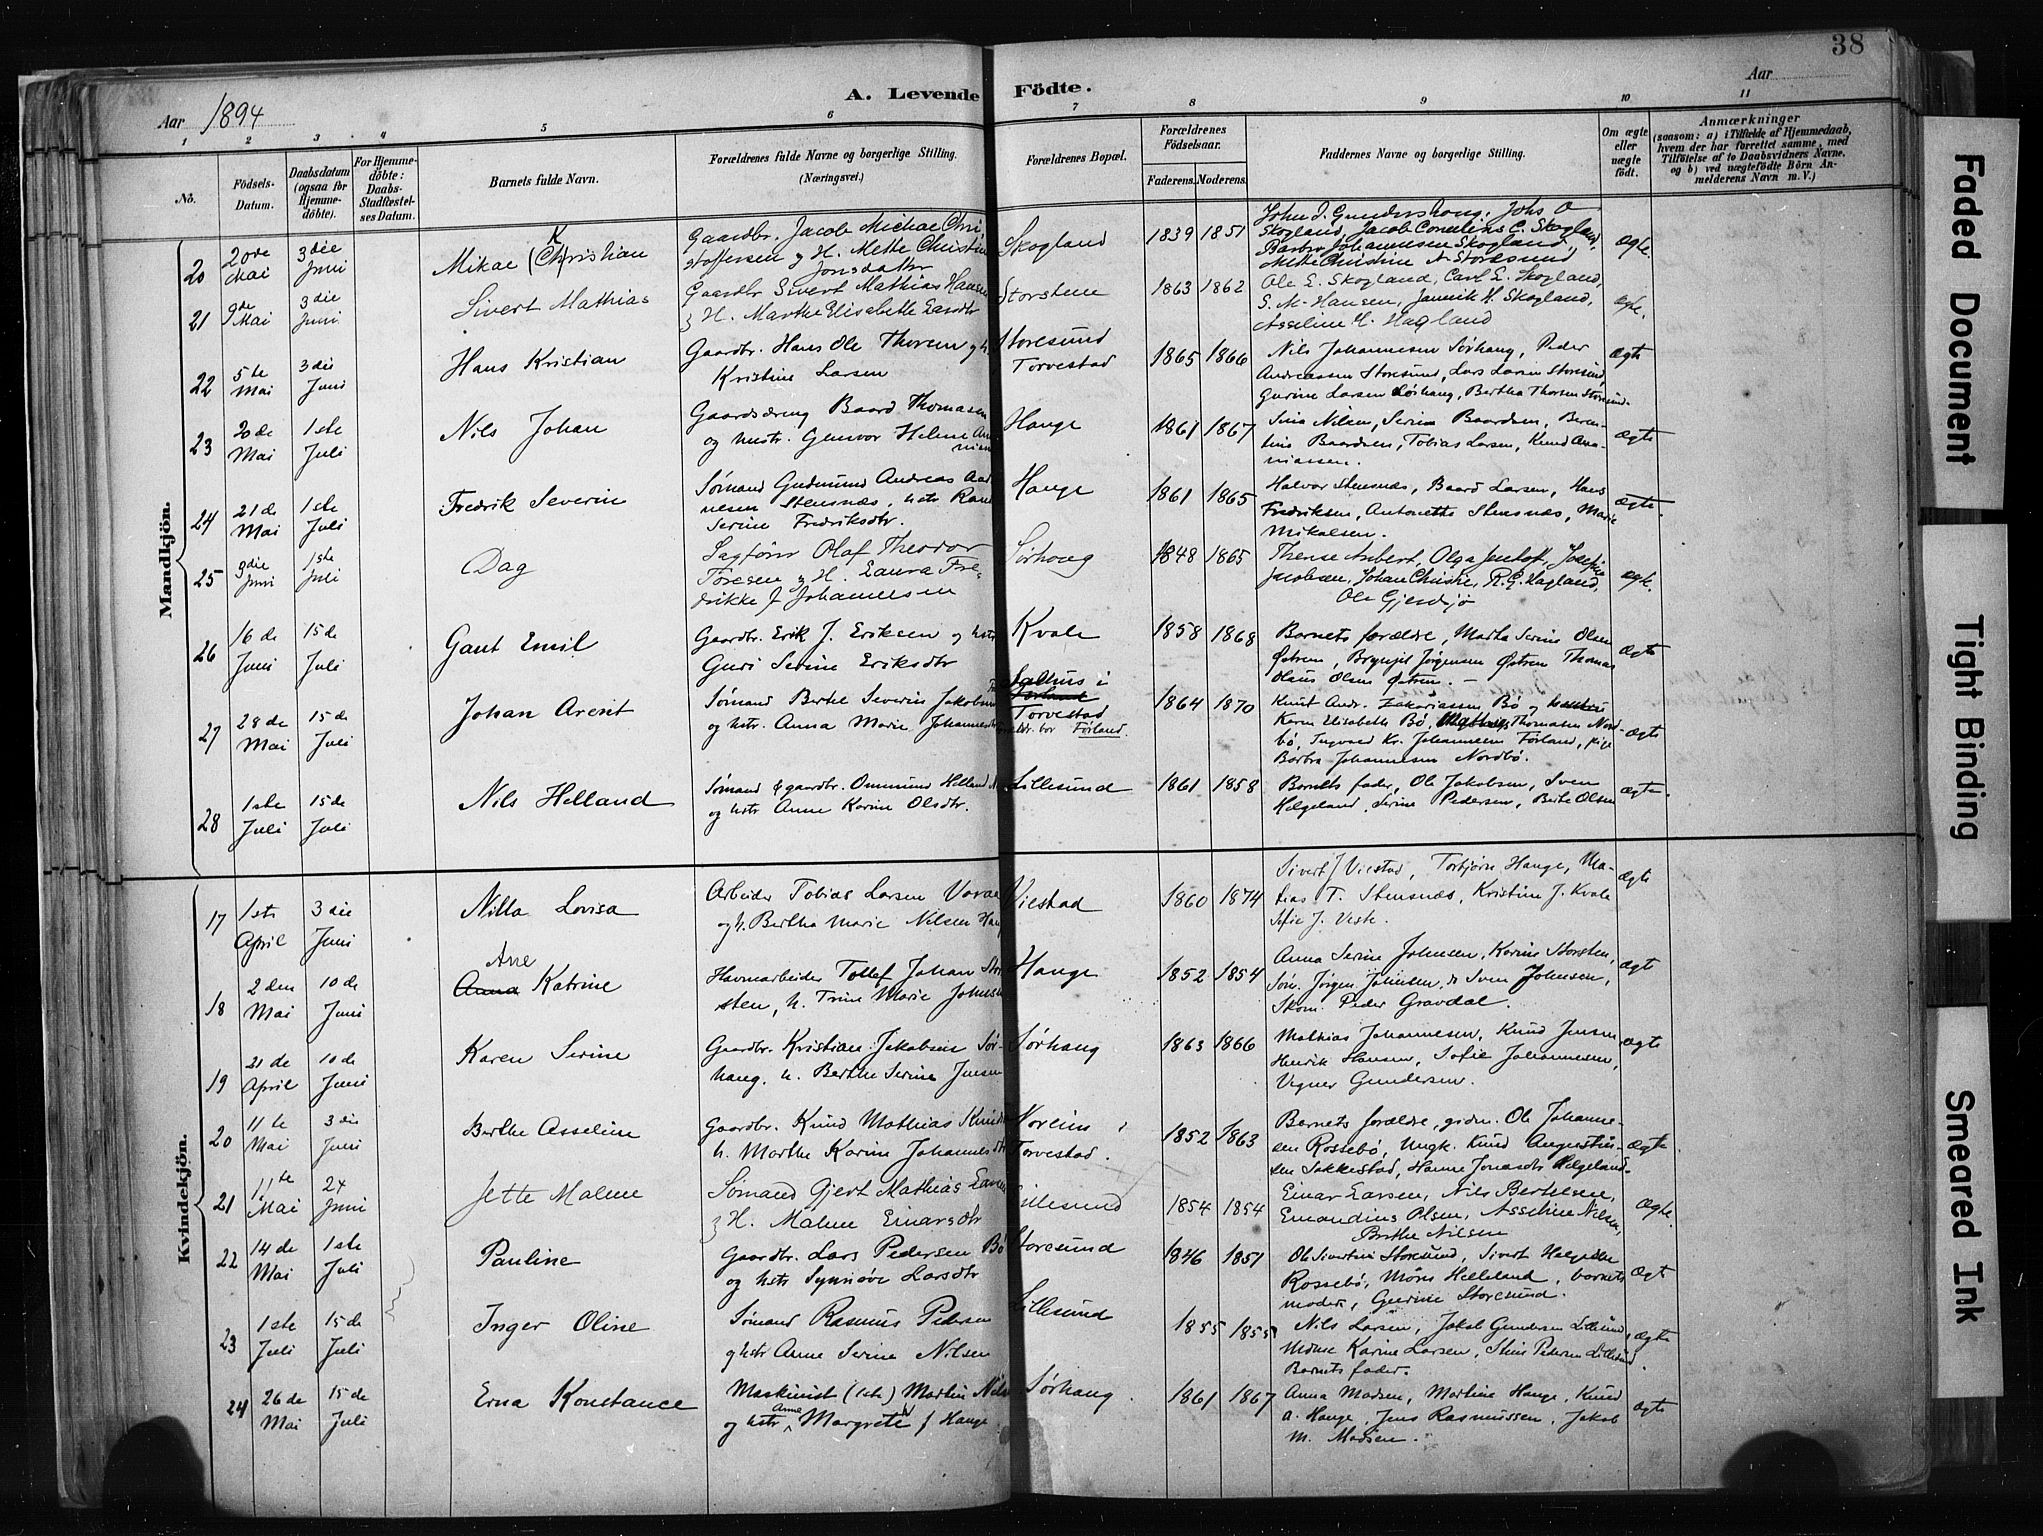 38
Aar 1894
A. Levende Födte.
Aar
1 2 3 4 5 6 7 8 9 10 11
Nô.
Födsels-Datum.
Daabsdatum (ogsaa for Hjemme-döbte).
For Hjemme-döbte: Daabs-Stadfæstel-ses Datum.
Barnets fulde Navn.
Forældrenes fulde Navne og borgerlige Stilling. (Næringsvei.)
Forældrenes Bopæl.
Forældrenes Födselsaar.
Faderens. Moderens.
Faddernes Navne og borgerlige Stilling.
Om ægte eller uægte födt.
Anmærkninger
(saasom: a) i Tilfælde af Hjemmedaab, hvem der har forrettet samme, med Tilföielse af to Daabsvidners Navne, og b) ved uægtefödte Börn An-melderens Navn m. V.)
Mandkjön.
20 20de Mai 3die Juni Mikae (Christian Gaardbr. Jacob Michae Chri-
stoffersen og H. Mette Christine
Jonsdatter
Skogland 1839 1851
Skogland, Jacob Cornelius C. Skogland,
Barbro Johannesen Skogland,
Mette Christine Storesund
ægte.
21 9de Mai 3die Juni Sivert Mathias Gaardbr Sivert Mathias Hansen
H. Marthe Elisabeth
1863 1862 Ole E. Skogland, Carl E. Skogland,
S. M. Hansen, Jannik H. Skogland,
Asseline H. Hagland
ægte.
22 5te Mai 3die Juni Hans Kristian Gaardbr. Hans Ole Thorsen og h.
Kristine Larsen
Storesund
Torvestad
1865 1866 Nils Johannesen Sørhaug, Peder
Andreassen Storesund, Lars Larsen Storesund,
Gurine Larsen Sørhaug, Bertha Thorsen Storesund.
ægte
23 20de Mai 1ste Juli Nils Johan Baard Thomasen
og hustr. Gunvor Helene
Hauge 1861 1867 Nilsen, Serine Baardsen,
Baardsen, Tobias Larsen, Knud Ana-
niassen.
ægte
24 21de Mai 1ste Juli Fredrik Severin Sømand Gudmund Andreas Aad-
nesen Stensnæs hstr Ran
Serine Fredriksdtr.
Hauge 1861 1865 Halvor Stensnæs, Baard Larsen, Hans
Fredriksen, Antonette Stensnæs, Marie
Mikalsen.
ægte.
25 9die Juni 1ste Juli Dag Sagfører Olaf Theodor
Toresen og H. Laura Fre-
drikke f Johannesen
Sørhaug 1848 1865
Jacobsen, Johan Christie, R. G. Hagland,
Ole Gjerdsjø
ægte.
26 16de Juni 15de Juli Gaut Emil Gaardbr. Erik J. Eriksen og hstr
Guri Serine Eriksdtr
Kvale 1858 1868 Barnets forældre, Marta Serine Olsen
Østrem, Brynjel Jørgensen Østrem Thomas
Olaus Olsen Østrem. –
ægte
27 28de Mai 15de Juli Johan Arent Sømand Berthe Severin Jakobsen
og hstr. Anna Marie Johannesdtr
Salhus i
Førland
Torvestad
bor Førland.
1864 1870 Knut Andr. Zakariassen Bø og
Karen Elisabeth Bø, Thomasen Nord-
bø, Ingvald Kr. Johannesen Førland, pige
Barbra Johannesen Nordbø.
ægte
28 1ste Juli 15de Juli Nils Helland Sømand & gaardbr. Ommund Helland
og hstr Anne Karine Olsdtr.
Lillesund 1861 1858 Barnets fader, Ole Jakobsen, Sven
Helgeland, Serine Pedersen, Berte Olsen
ægte
Kvindekjön.
17 1ste April 3die Juni Nilla Lovisa Arbeider Tobias Larsen
og h. Bertha Marie Nilsen
Viestad 1860 1874 Sivert J Viestad, Torbjørn Hauge, Ma-
tias T. Stensnæs, Kristine J. Kvale
Sofie J.
ægte
18 2den Mai 10de Juni Ane
Anna Katrine Havnarbeider Tollef Johan Stor-
sten, h. Trine Marie Johnsen
Hauge 1852 1854 Anna Serine Johnsen, Karine Storsten,
Søn. Jørgen Johnsen, Sven Johnsen,
Skom. Peder Gravdal.
ægt
19 21de April 10de Juni Karen Serine Gaardbr. Kristian Jakobsen Sør-
haug, h. Berthe Serine Jensen
Sørhaug 1863 1866 Mathias Johannesen, Knud Jensen
Henrik Hansen, Sofie Johannesen,
Vigner Gundersen.
ægte
20 11te Mai 3die Juni Berthe Asseline Gaardbr. Knud Mathias Knud
h. Marthe Karine Johannesdtr
Norein i
Torvestad.
1852 1863 Barnets forældre, grdm. Ole Johanne-
sen Rossebø, Ungk. Knud Augustin-
sen Sakkestad, Hanne Jonasdtr Helgeland.
ægte
21 11te Mai 24 Juni Jette Malene Sømand Gjert Mathias Larsen
H. Malene Einarsdtr
Lillesund 1854 1854 Einar Larsen, Nils Bertelsen,
Emandius Olsen, Asseline Nilsen,
Berthe Nilsen
ægte.
22 14de Mai 1ste Juli Pauline Gaardbr. Lars Pedersen Bø
og hstr Synnøve Larsdtr
Storesund 1846 1851 Ole Sivertsen Storesund, Sivert Helgesen
Rossebø, Måns Helleland, barnets
moder, Gurine Storesund.
ægt
23 1ste Juli 15de Juli Inger Oline Sømand Rasmus Pedersen
og hstr Anne Serine Nilsen
Lillesund 1855 1855 Nils Larsen, Jakob Gundersen Lillesund,
Karine Larsen, Stine Pedersen Lillesund.
Barnets fader.
ægte
24 26de Mai 15de Juli Erna Konstance Maskinist (1ste) Martin Nils
og hstr Anne Margrete f Hauge
Sørhaug. 1861 1867 Anna Madsen, Martine Hauge, Knud
A. Hauge, Jens Rasmussen, Jakob
M. Madsen.
ægte
Faded Document
Tight Binding
Smeared Ink